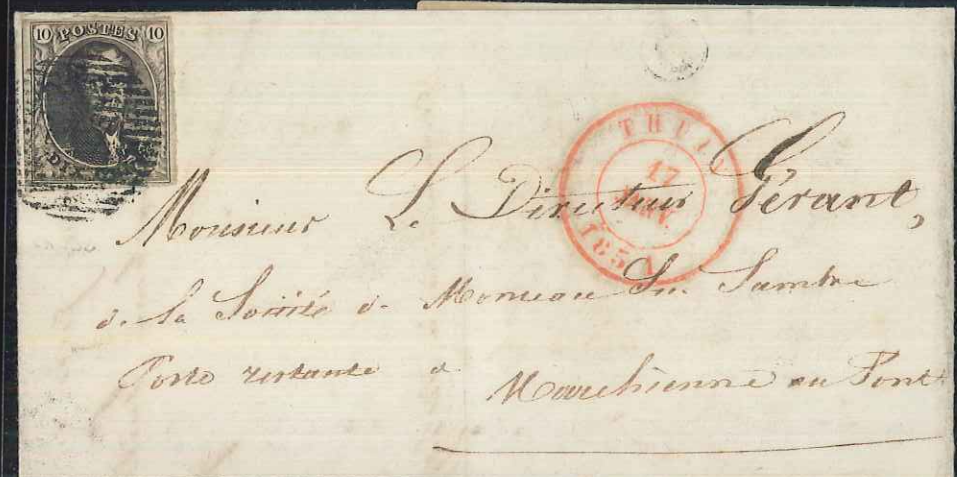 10 POSTES 10
THUIN
17
1851
Monsieur Le Directeur Gérant,
de la Société de Monceau Sur Sambre
Poste restante a Marchienne au Pont